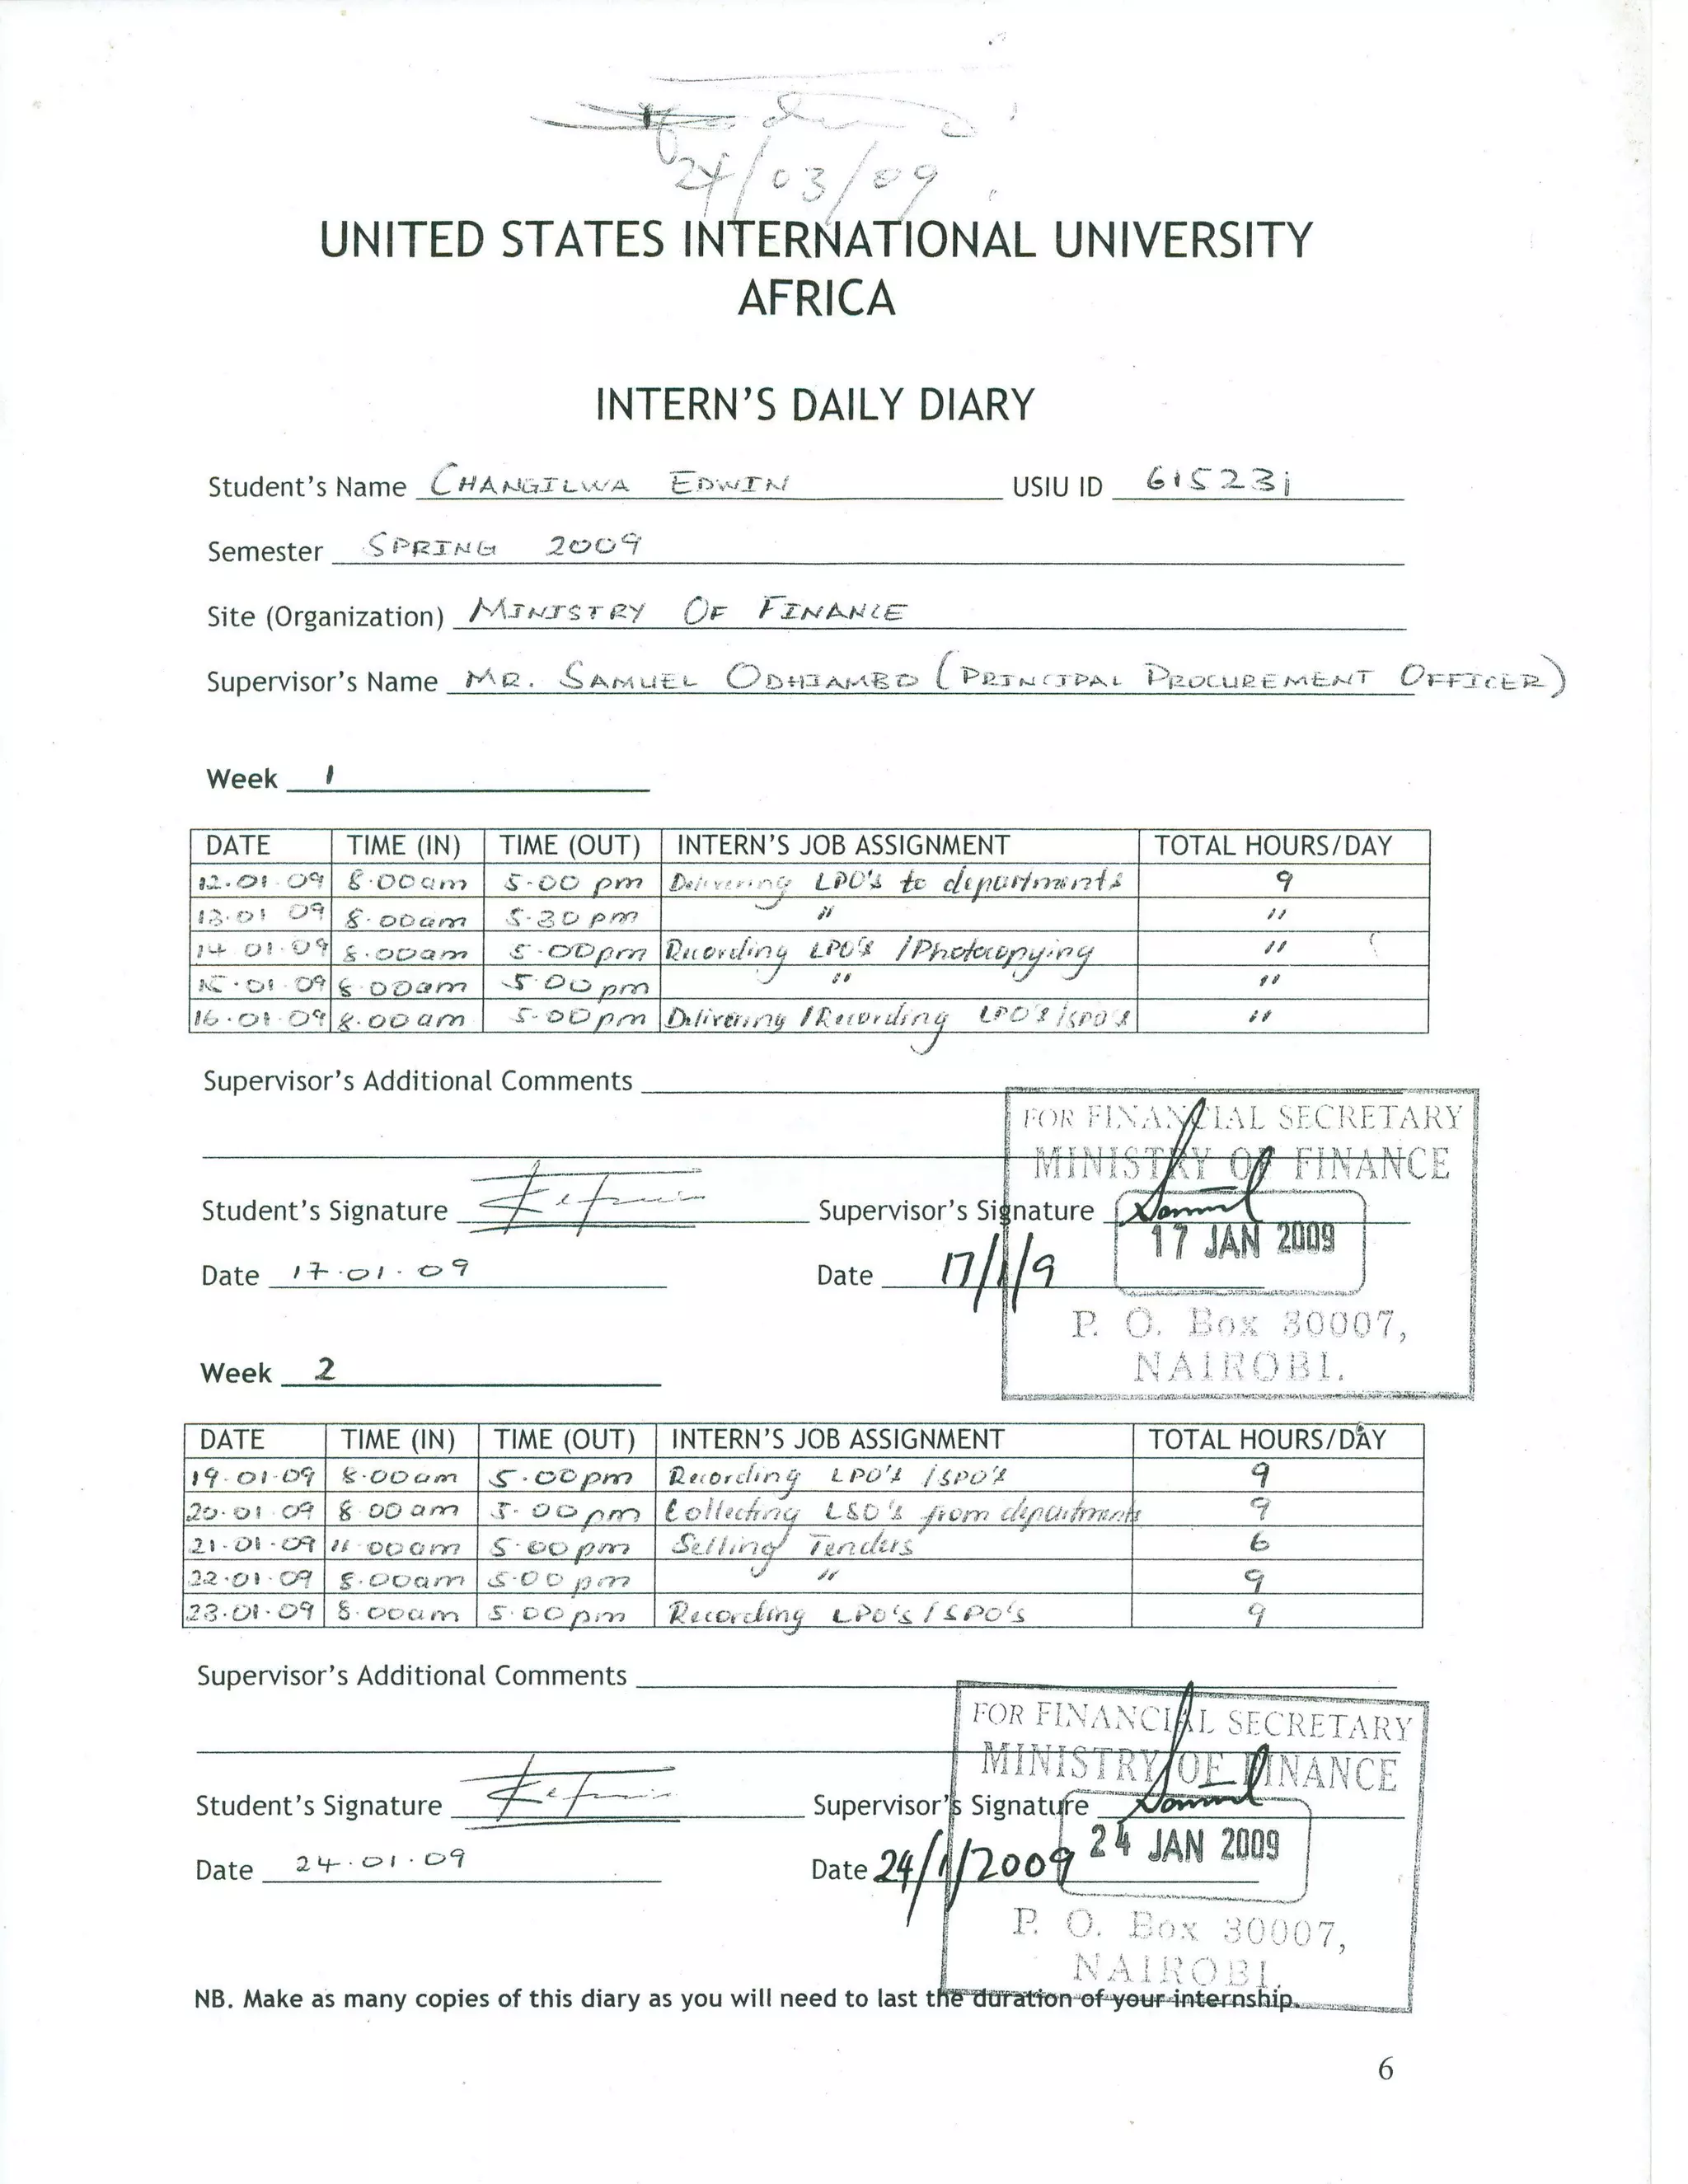 24/03/09
UNITED STATES INTERNATIONAL UNIVERSITY
AFRICA
INTERN'S DAILY DIARY
Student's Name CHANGILWA EDWIN USIU ID 615231
Semester SPRING 2009
Site (Organization) MINISTRY OF FINANCE
Supervisor's Name MR. SAMUEL ODHIAMBO (PRINCIPAL PROCUREMENT OFFICER)
Week 1
DATE TIME (IN) TIME (OUT) INTERN'S JOB ASSIGNMENT TOTAL HOURS/DAY
12.01.09 8.00am 5.00 pm Delivering LPO's to departments 9
13.01 09 8.00am 5.30 pm " "
14 01.09 8.00am 5.00pm Recording LPO's /Photocopying "
15.01.09 8.00am 5.00pm " "
16.01.09 8.00am 5.00pm Delivering /Recording LPO's /SPO's "
Supervisor's Additional Comments
FOR FINANCIAL SECRETARY
MINISTRY OF FINANCE
Student's Signature Supervisor's Signature
17 JAN 2009
Date 17.01.09 Date 17/1/9
P. O. Box 30007,
NAIROBI.
Week 2
DATE TIME (IN) TIME (OUT) INTERN'S JOB ASSIGNMENT TOTAL HOURS/DAY
19.01.09 8.00am 5.00pm Recording LPO's /SPO's 9
20.01.09 8.00am 5.00pm Collecting LSO's from departments 9
21.01.09 11.00am 5.00pm Selling Tenders 6
22.01.09 8.00am 5.00pm " 9
23.01.09 8.00am 5.00pm Recording LPO's / SPO's 9
Supervisor's Additional Comments
FOR FINANCIAL SECRETARY
MINISTRY OF FINANCE
Student's Signature Supervisor's Signature
24 JAN 2009
Date 24.01.09 Date 24/1/2009
P. O. Box 30007,
NAIROBI.
NB. Make as many copies of this diary as you will need to last the duration of your internship.
6